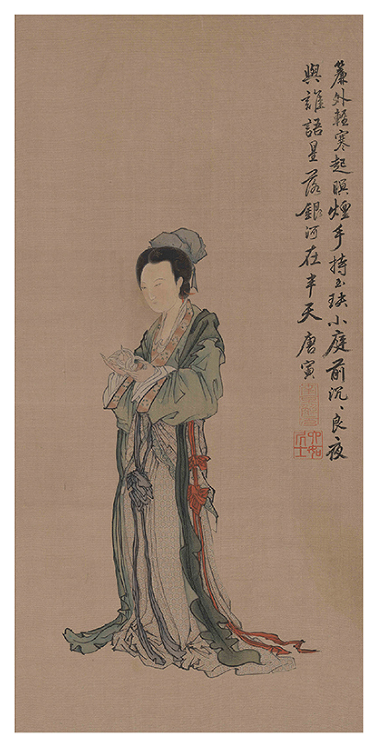 簾外輕寒起暝煙手持玉玦小庭前沉、良夜
與誰語星落銀河在半天唐寅
六如居士